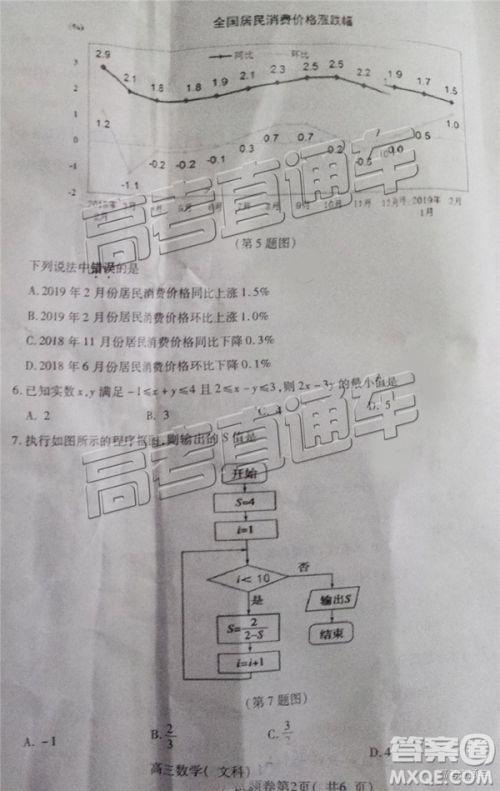 (%)
全国居民消费价格涨跌幅
同比 环比
3
2
1
0
-1
-2
2.9 2.1 1.8 1.8 1.9 2.1 2.3 2.5 2.5 2.2 1.9 1.7 1.5
1.2 -1.1 -0.2 -0.2 -0.1 0.3 0.7 0.7 0.2 -0.3 0.0 0.5 1.0
2月 3月 6月 9月 11月 12月 2019年1月 2月
(第5题图)
下列说法中错误的是
A. 2019 年 2 月份居民消费价格同比上涨 1.5%
B. 2019 年 2 月份居民消费价格环比上涨 1.0%
C. 2018 年 11 月份居民消费价格同比下降 0.3%
D. 2018 年 6 月份居民消费价格环比下降 0.1%
6. 已知实数 x, y 满足 -1≤x+y≤4 且 2≤x-y≤3, 则 2x-3y 的最小值是
A. 2 B. 3 C. 4 D. 5
7. 执行如图所示的程序框图, 则输出的 S 值是
开始
S=4
i=1
i<10
否
是
输出S
S=2/(2-S)
结束
i=i+1
(第7题图)
A. -1 B. 2/3 C. D. 4
高三数学( 文科) 试题卷第2页( 共6 页)
高考直通车
高考直通车
答案圈
MXQE.COM